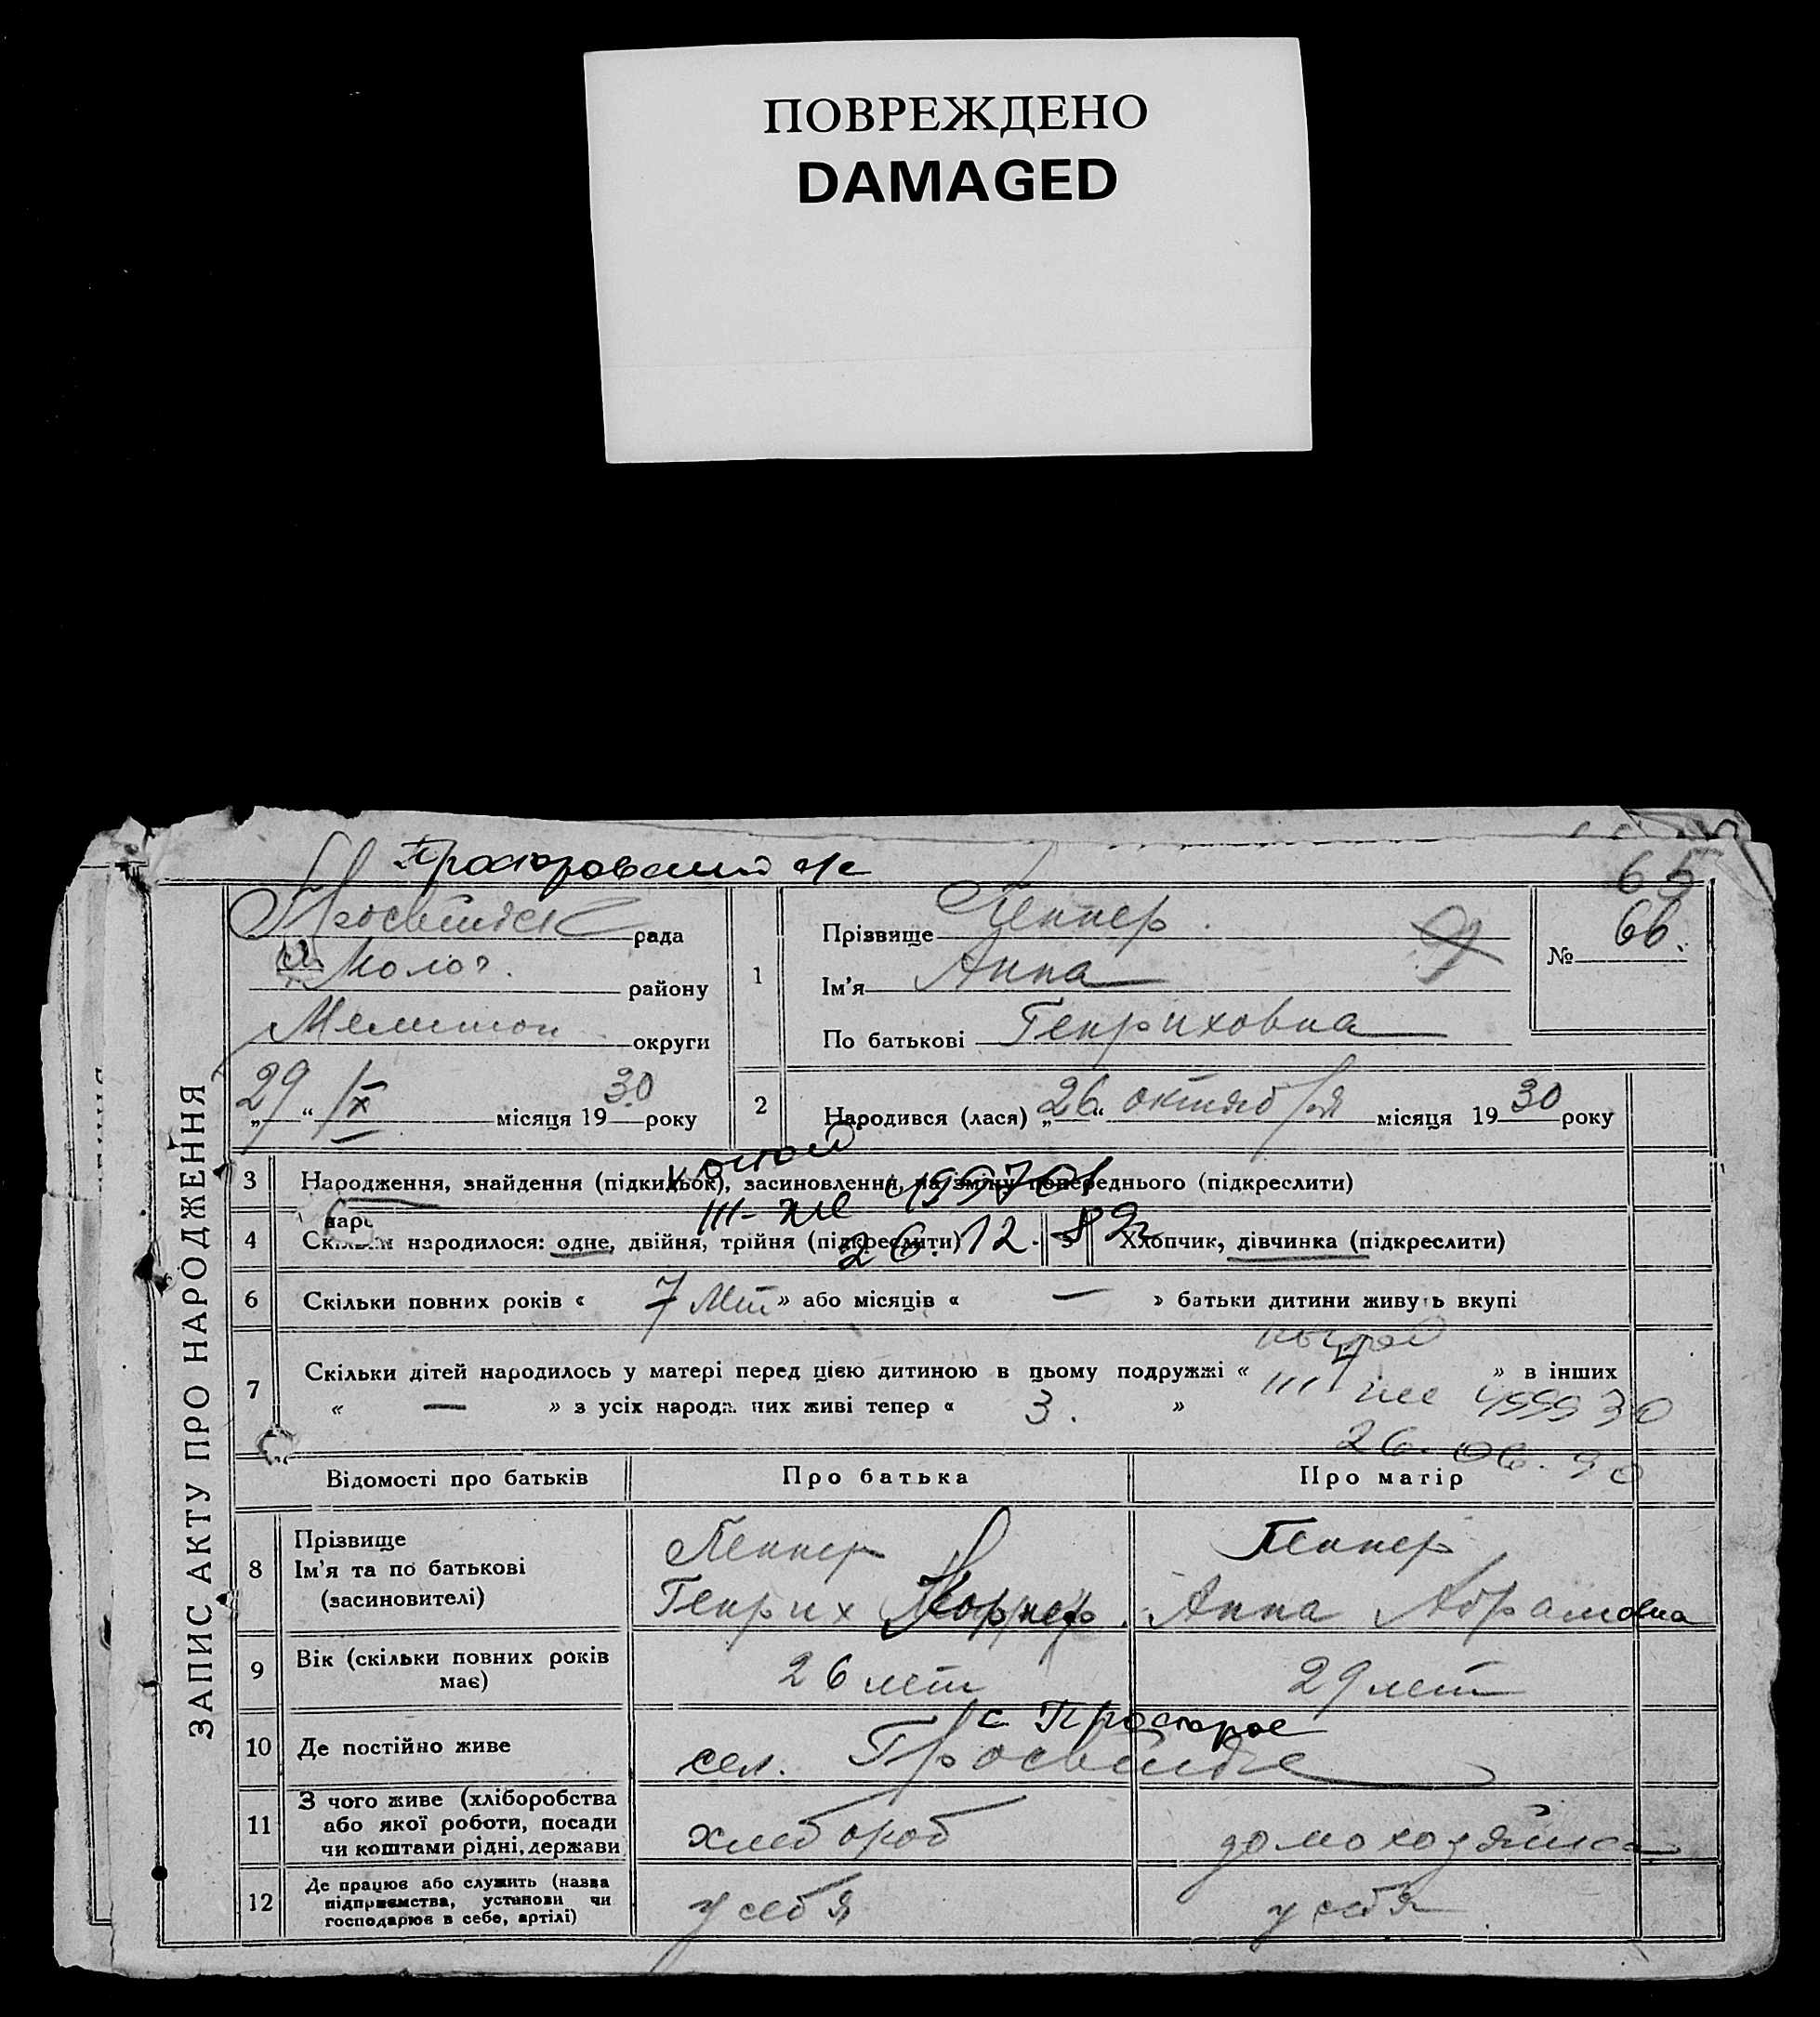 ПОВРЕЖДЕНО
DAMAGED
65
ЗАПИС АКТУ ПРО НАРОДЖЕННЯ
рада
Молоч. району
Мелитоп округи
„29“ IX місяця 1930 року
1
Прізвище Пеннер
Ім'я Анна
По батькові Генриховна
№ 66.
2
Народився (лася) „26“ октября місяця 1930 року
3 Народження, знайдення (підкидьок), засиновлення, на зміну попереднього (підкреслити)
III-ЖС
4 Скільки народилося: одне, двійня, трійня (підкреслити)
26.12.89г
5 Хлопчик, дівчинка (підкреслити)
6 Скільки повних років « 7 лет » або місяців « — » батьки дитини живуть вкупі
7 Скільки дітей народилось у матері перед цією дитиною в цьому подружжі « » в інших
« — » з усіх народж. них живі тепер « 3. »
26.06.90
Відомості про батьків
Про батька
Про матір
8 Прізвище
Ім'я та по батькові
(засиновителі)
Пеннер
Генрих
Пеннер
Анна Абрамовна
9 Вік (скільки повних років має)
26 лет
29 лет
10 Де постійно живе
с. Просторое
сел.
11 З чого живе (хліборобства
або якої роботи, посади
чи коштами рідні, держави
хлебороб
домохозяйка
12 Де працює або служить (назва
підприємства, установи чи
господарює в себе, артілі)
у себя
у себя